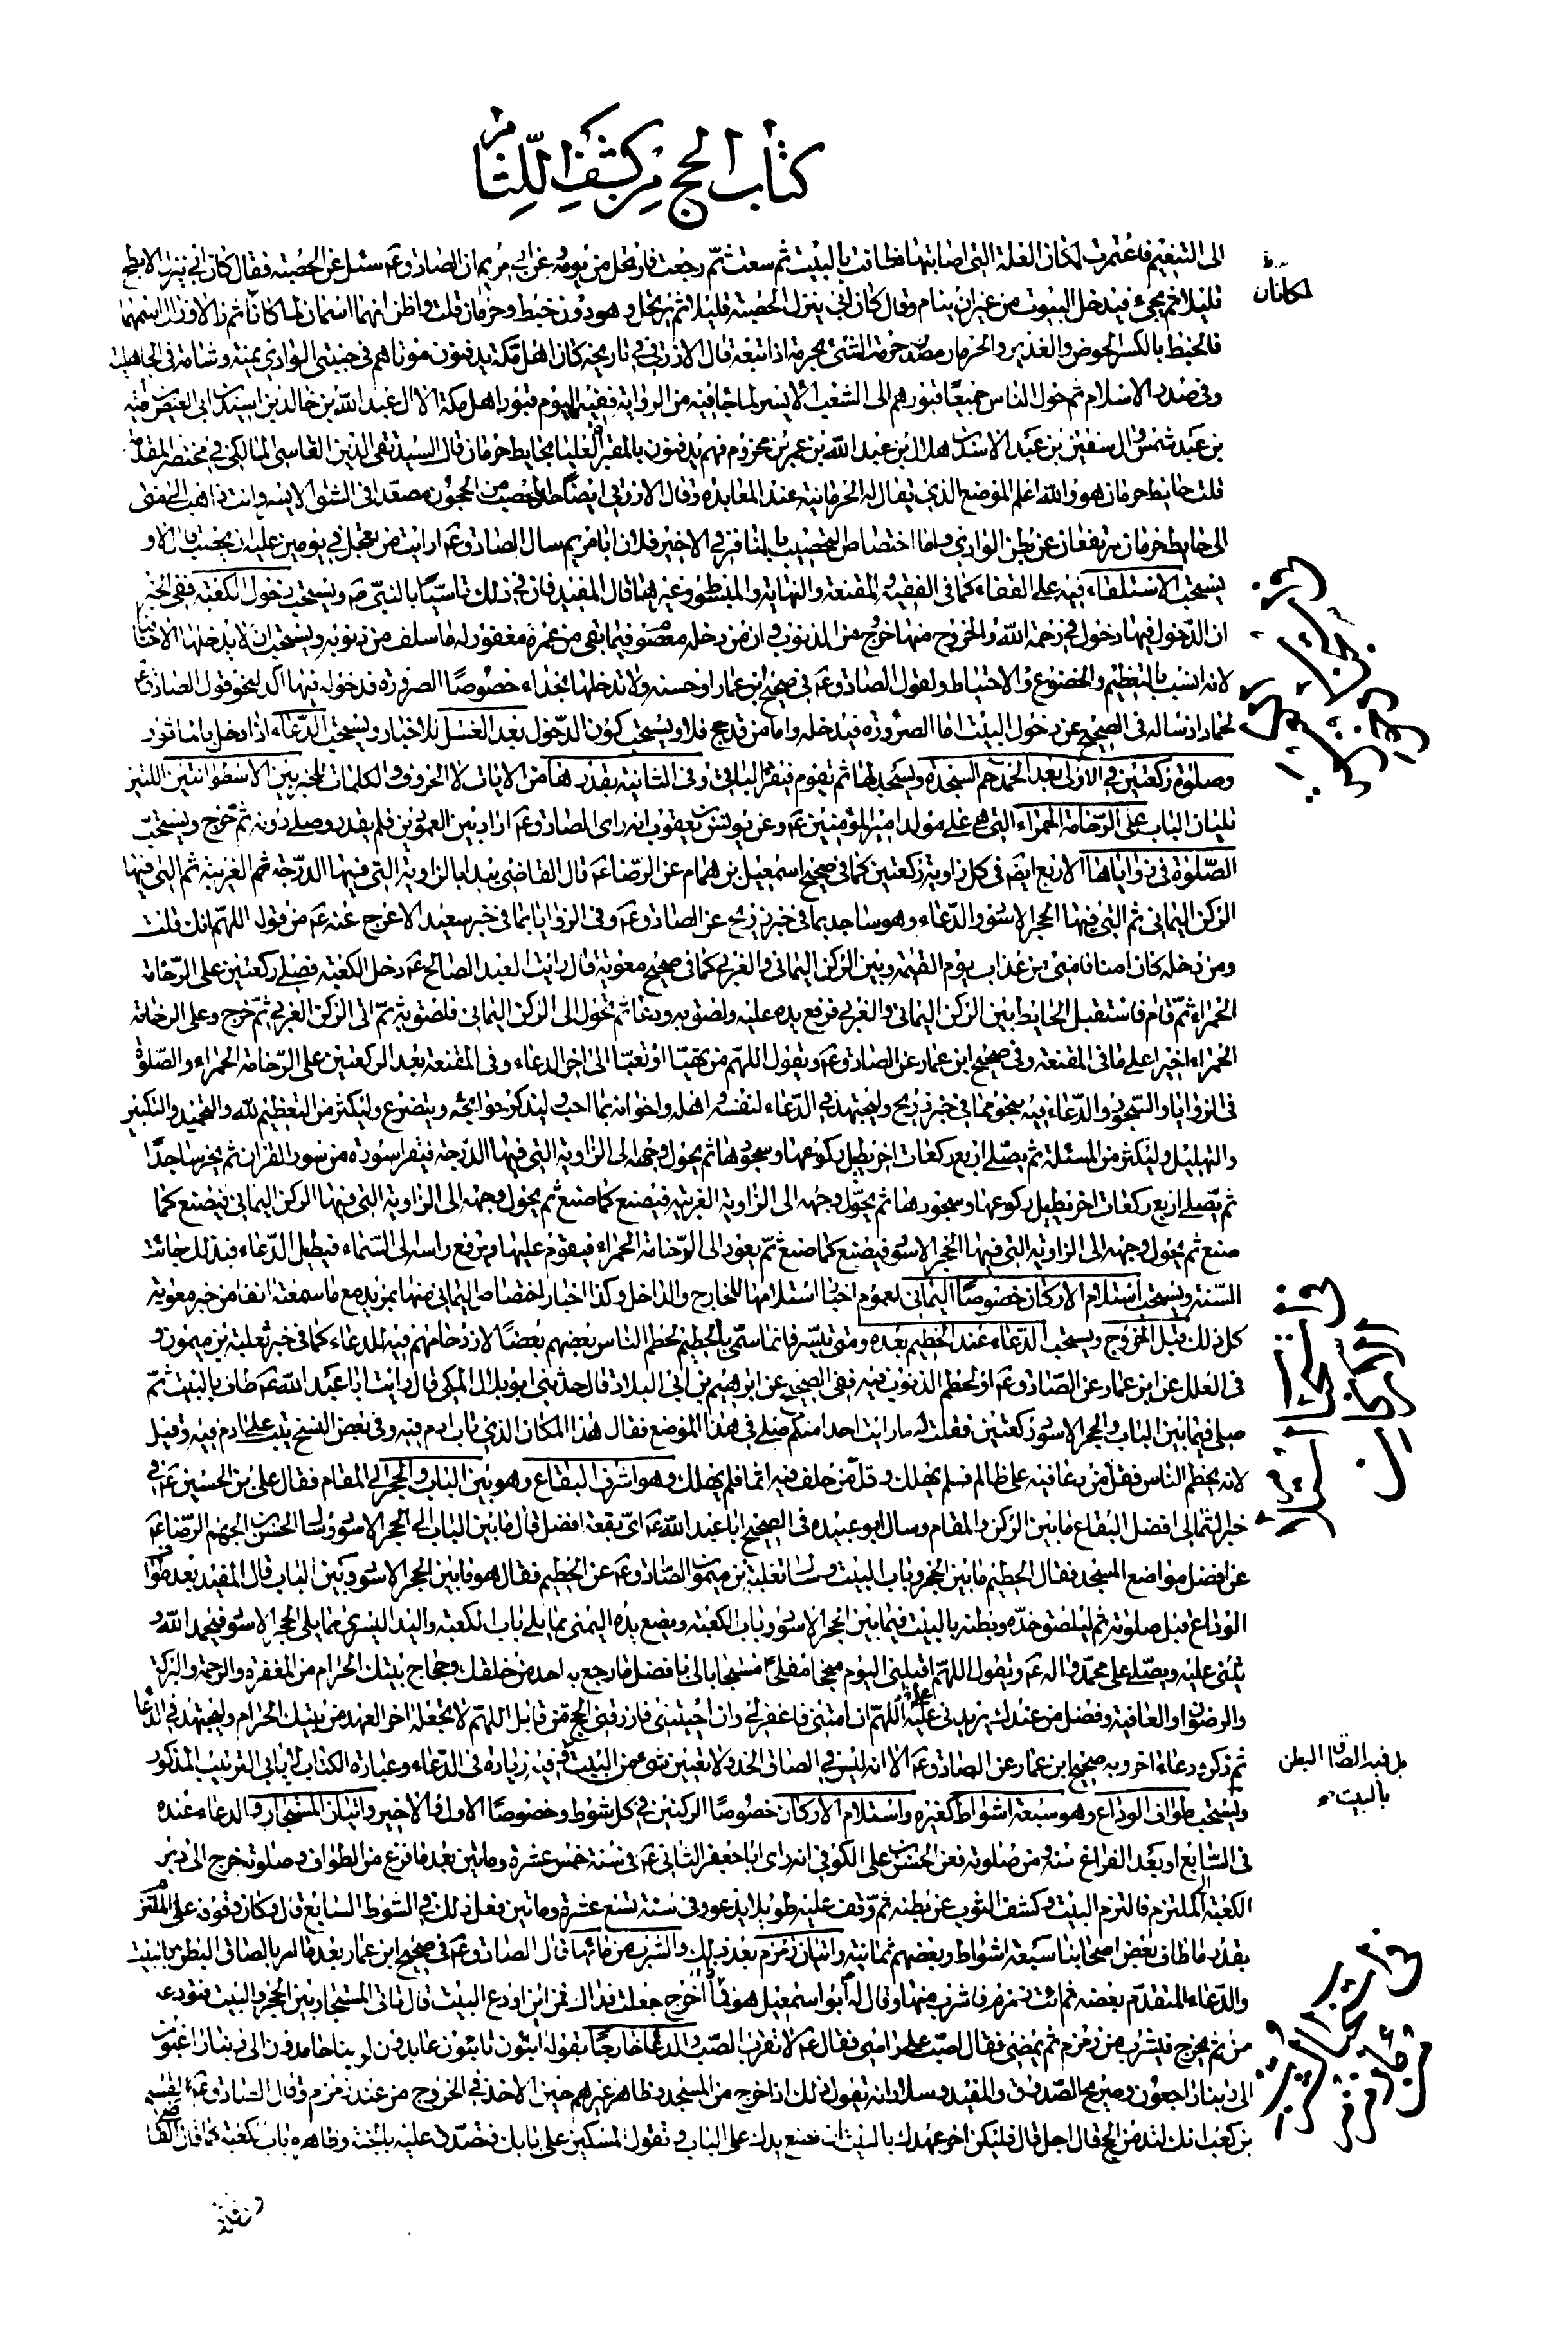 كتاب الحج من كشف اللثام
الى التنعيم فاعتمرت لمكان العلة التى اصابتها فطافت بالبيت ثم سعت ثم رجعت فارتحل من يومه وعن ابى مريم ان الصادق ع سئل عن الحصبة فقال كان ابى ينزل الابطح
قليلا ثم يجئ فيدخل البيوت من غير ان ينام وقال كان ابى ينزل الحصبة قليلا ثم يرتحل وهو دون خبط وحرمان قلت واظن انهما اسمان لمكانان ثم زالا وزال اسمهما
فالخبط بالكسر الحوض والغدير والحرمان مصدر حرمه الشئ يحرمه اذا منعه قال الازرقى فى تاريخه كان اهل مكة يدفنون موتاهم فى جنبتى الوادى يمنة وشامة فى الجاهلية
وفى صدر الاسلام ثم حول الناس جميعا قبورهم الى الشعب الايسر لما جاء فيه من الرواية ففيه اليوم قبور اهل مكة الا ال عبد الله بن خالد بن اسيد بن ابى العيص بن امية
بن عبد شمس وال سفين بن عبد الاسد بن هلال بن عبد الله بن عمر بن مخزوم فهم يدفنون بالمقبرة العليا بحايط حرمان قال السيد تقى الدين الفاسى المالكى فى مختصر
قلت حايط حرمان هو والله اعلم الموضع الذى يقال له الخرمانية عند المعابده وقال الازرقى ايضا حد المحصب من الحجون مصعدا فى الشق الايسر وانت ذاهب الى منى
الى حايط حرمان مرتفعا عن بطن الوادى واما اختصاص التحصيب بالنافر فى الاخير فلان ابا مريم سال الصادق ع ارايت من تعجل فى يومين عليه ان يحصب قال لا و
يستحب الاستلقاء فيه على القفاء كما فى الفقيه والمقنعة والنهاية والمبسوط وغيرها قال المفيد فان فى ذلك تاسيا بالنبى ص ويستحب دخول الكعبة ففى الخبر
ان الدخول فيها دخول فى رحمة الله والخروج منها خروج من الذنوب وان من دخله معصوم فيما بقى من عمره مغفور له ما سلف من ذنوبه ويستحب ان لا يدخلها الا حافيا
لانه انسب بالتعظيم والخضوع والاحتياط ولقول الصادق ع فى صحيح ابن عمار او حسنه ولا تدخلها بحذاء خصوصا الصرورة فدخوله فيها اكد لنحو قول الصادق ع
لحماد اذ ساله فى الصحيح عن دخول البيت اما الصرورة فيدخله واما من قد حج فلا ويستحب كون الدخول بعد الغسل للاخبار ويستحب الدعاء اذا دخل بالماثور
وصلوة ركعتين فى الاولى بعد الحمد حم السجدة ويسجد لها ثم يقوم فيقرا الباقى وفى الثانية بقدرها من الايات لا الحروف والكلمات للخبر بين الاسطوانتين اللتين
تليان الباب على الرخامة الحمراء التى هى على مولد امير المؤمنين ع وعن يونس بن يعقوب انه راى الصادق ع اراد بين العمودين فلم يقدر وصلى دونه ثم خرج ويستحب
الصلوة فى زواياها الاربع ايضا فى كل زاوية ركعتين كما فى صحيح اسمعيل بن همام عن الرضا ع قال القاضى يبدا بالزاوية التى فيها الدرجة ثم الغربية ثم التى فيها
الركن اليمانى ثم التى فيها الحجر الاسود والدعاء وهو ساجد بما فى خبر ذريح عن الصادق ع وفى الزوايا بما فى خبر سعيد الاعرج عنه ع من قوله اللهم انك قلت
ومن دخله كان امنا فامنى من عذاب يوم القيمة وبين الركن اليمانى والغربى كما فى صحيح معوية قال رايت العبد الصالح ع دخل الكعبة فصلى ركعتين على الرخامة
الحمراء ثم قام فاستقبل الحايط بين الركن اليمانى والغربى فرفع يده عليه ولصق به ودعا ثم تحول الى الركن اليمانى فلصق به ثم اتى الركن الغربى ثم خرج وعلى الرخامة
الحمراء اخيرا على ما فى المقنعة وفى صحيح ابن عمار عن الصادق ع ويقول اللهم من تهيا او تعبا الى اخر الدعاء وفى المقنعة بعد الركعتين على الرخامة الحمراء والصلوة
فى الزوايا والسجود والدعاء فيه بنحو مما فى خبر ذريح وليجتهد فى الدعاء لنفسه واهله واخوانه بما احب وليذكر حوايجه ويتضرع وليكثر من التعظيم لله والتحميد والتكبير
والتهليل وليكثر من المسئلة ثم يصلى اربع ركعات اخر يطيل ركوعها وسجودها ثم يحول وجهه الى الزاوية التى فيها الدرجة فيقرا سورة من سور القران ثم يخر ساجدا
ثم يصلى اربع ركعات اخر يطيل ركوعها وسجودها ثم يحول وجهه الى الزاوية الغربية فيصنع كما صنع ثم يحول وجهه الى الزاوية التى فيها الركن اليمانى فيصنع كما
صنع ثم يحول وجهه الى الزاوية التى فيها الحجر الاسود فيصنع كما صنع ثم يعود الى الرخامة الحمراء فيقوم عليها ويرفع راسه الى السماء فيطيل الدعاء فبذلك جائت
السنة ويستحب استلام الاركان خصوصا اليمانى لعموم اخبار استلامها للخارج والداخل وكذا اخبار اختصاص اليمانى منها بمزيد مع ما سمعته انفا من خبر معوية
كل ذلك قبل الخروج ويستحب الدعاء عند الحطيم بعده ومتى تيسر فانما سمى بالحطيم لحطم الناس بعضهم بعضا لازدحامهم فيه للدعاء كما فى خبر ثعلبة بن ميمون و
فى العلل عن ابن عمار عن الصادق ع او لحطم الذنوب فيه ففى الصحيح عن ابرهيم بن ابى البلاد قال حدثنى ابو بلال المكى قال رايت ابا عبد الله ع طاف بالبيت ثم
صلى فيما بين الباب والحجر الاسود ركعتين فقلت له ما رايت احدا منكم صلى فى هذا الموضع فقال هذا المكان الذى تاب ادم فيه وفى بعض النسخ تيب على ادم فيه وقيل
لانه يحطم الناس فقل من دعا فيه على ظالم فلم يهلك وقل من حلف فيه اثما فلم يهلك وهو اشرف البقاع وهو بين الباب والحجر الى المقام فقال على بن الحسين ع فى
خبر الثمالى افضل البقاع ما بين الركن والمقام وسال ابو عبيده فى الصحيح ابا عبد الله ع اى بقعة افضل قال ما بين الباب الى الحجر الاسود وسال الحسن بن الجهم الرضا ع
عن افضل مواضع المسجد فقال الحطيم ما بين الحجر وباب البيت وسال ثعلبة بن ميمون الصادق ع عن الحطيم فقال هو ما بين الحجر الاسود وبين الباب قال المفيد بعد طواف
الوداع قبل صلوته ثم ليلصق خده وبطنه بالبيت فيما بين الحجر الاسود وباب الكعبة ويضع يده اليمنى مما يلى باب الكعبة واليد اليسرى مما يلى الحجر الاسود فيحمد الله و
يثنى عليه ويصلى على محمد واله ع ويقول اللهم اقبلنى اليوم منجحا مفلحا مستجابا لى بافضل ما رجع به احد من خلقك وحجاج بيتك الحرام من المغفرة والرحمة والبركة
والرضوان والعافية وفضل من عندك يزيدنى عليه اللهم ان امتنى فاغفر لى وان احييتنى فارزقنى الحج من قابل اللهم لا تجعله اخر العهد من بيتك الحرام وليجتهد فى الدعا
ثم ذكر دعاء اخر وبه صحيح ابن عمار عن الصادق ع الا انه ليس فى الصاق الخد ولا تعيين شئ من البيت وفيه زيادة فى الدعاء وعبارة الكتاب لا يابى الترتيب المذكور
ويستحب طواف الوداع وهو سبعة اشواط كغيره واستلام الاركان خصوصا الركنين فى كل شوط وخصوصا الاول والاخير واتيان المستجار والدعاء عنده
فى السابع او بعد الفراغ منه ومن صلوته فعن الحسن بن على الكوفى انه راى ابا جعفر الثانى ع فى سنة خمس عشرة وماتين بعد ما فرغ من الطواف وصلوته خرج الى دبر
الكعبة الى الملتزم فالتزم البيت وكشف الثوب عن بطنه ثم وقف عليه طويلا يدعو وفى سنة تسع عشرة وماتين فعل ذلك فى الشوط السابع قال وكان وقوفه على الملتزم
بقدر ما طاف بعض اصحابنا سبعة اشواط وبعضهم ثمانية واتيان زمزم بعد ذلك والشرب من مائها قال الصادق ع فى صحيح ابن عمار بعد ما امر بالصاق البطن بالبيت
والدعاء المتقدم بعضه ثم ائت زمزم فاشرب منها وقال له ابو اسمعيل هو ذا اخرج جعلت فداك فمن اين اودع البيت قال تاتى المستجار بين الحجر والبيت فتودعه
من ثم تخرج فتشرب من زمزم ثم تمضى فقال اصب على راسى فقال ع لا تقرب الصب والدعا خارجا بقوله ائبون تائبون عابدون لربنا حامدون الى ربنا راغبون
الى ربنا راجعون وصريح الصدوق والمفيد وسلار انه يقول ذلك اذا خرج من المسجد وظاهر غيرهم حين الاخذ فى الخروج من عند زمزم وقال الصادق ع لقثم
بن كعب انك لتدمن الحج قال اجل قال فليكن اخر عهدك بالبيت ان تضع يدك على الباب وتقول المسكين على بابك فتصدق عليه بالجنة وظاهره باب الكعبة كما قال القاضى
لمكانان
بل فيه الصاق البطن
بالبيت